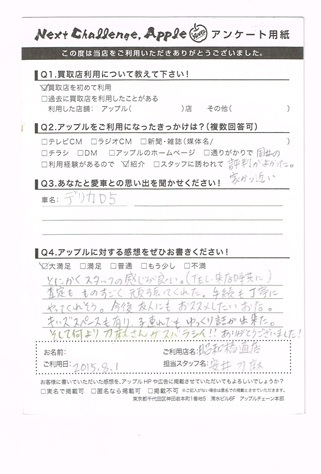 Next Challenge. Apple アンケート用紙
この度は当店をご利用いただきありがとうございました。
Q1.買取店利用について教えて下さい！
☑買取店を初めて利用
□過去に買取店を利用したことがある
利用した店舗: アップル( )店 その他( )
Q2.アップルをご利用になったきっかけは？(複数回答可)
□テレビCM □ラジオCM □新聞・雑誌(媒体名/ )
□チラシ □DM □アップルのホームページ □通りがかりで
□利用経験があるので ☑紹介 □スタッフに誘われて
評判がよかった。
家から近い
Q3.あなたと愛車との思い出を聞かせください！
車名: デリカD5
Q4.アップルに対する感想をぜひお書きください！
☑大満足 □満足 □普通 □もう少し □不満
とにかくスタッフの感じが良い。(TEL、来店時共に)
査定をものすごく頑張ってくれた。手続も丁寧に
やってくれそう。今後友人にもおススメしたいお店。
キッズスペースも有り、子連れでもゆっくり話が出来た。
そして何より 刀根さんがスバラシイ!! ありがとうございました!!
お名前:
ご利用店名: 昭和橋通店
ご利用日: 2015.8.1
担当スタッフ名: 安井 刀根
お客様に書いていただいた感想を、アップルHPや広告に掲載させていただいてもよろしいでしょうか？
□実名で掲載可 □匿名なら掲載可 □掲載不可
東京都千代田区神田須本町1番地5 清水ビル6F アップルチェーン本部